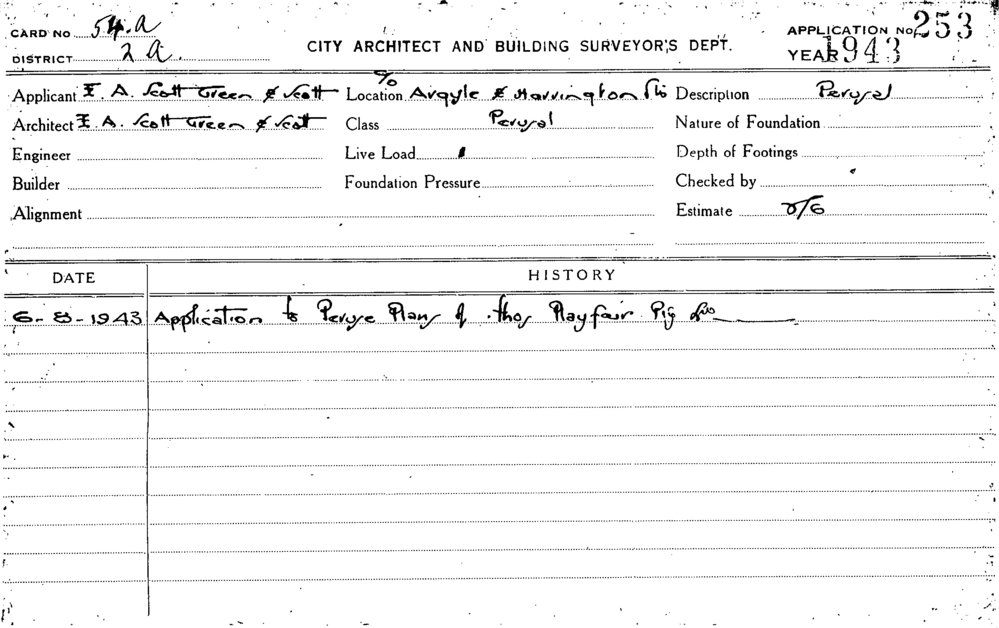 CARD NO 54.A
DISTRICT 2 A.
CITY ARCHITECT AND BUILDING SURVEYOR'S DEPT.
APPLICATION No. 253
YEAR 1943
Applicant E. A. Scott Green & Scott
Location c/o Argyle & Harrington Sts
Description Perusal
Architect E. A. Scott Green & Scott
Class Perusal
Nature of Foundation
Engineer
Live Load
Depth of Footings
Builder
Foundation Pressure
Checked by
Alignment
Estimate 2/6
DATE HISTORY
6-8-1943 Application to Peruse Plans of Thos Playfair Pty Ltd